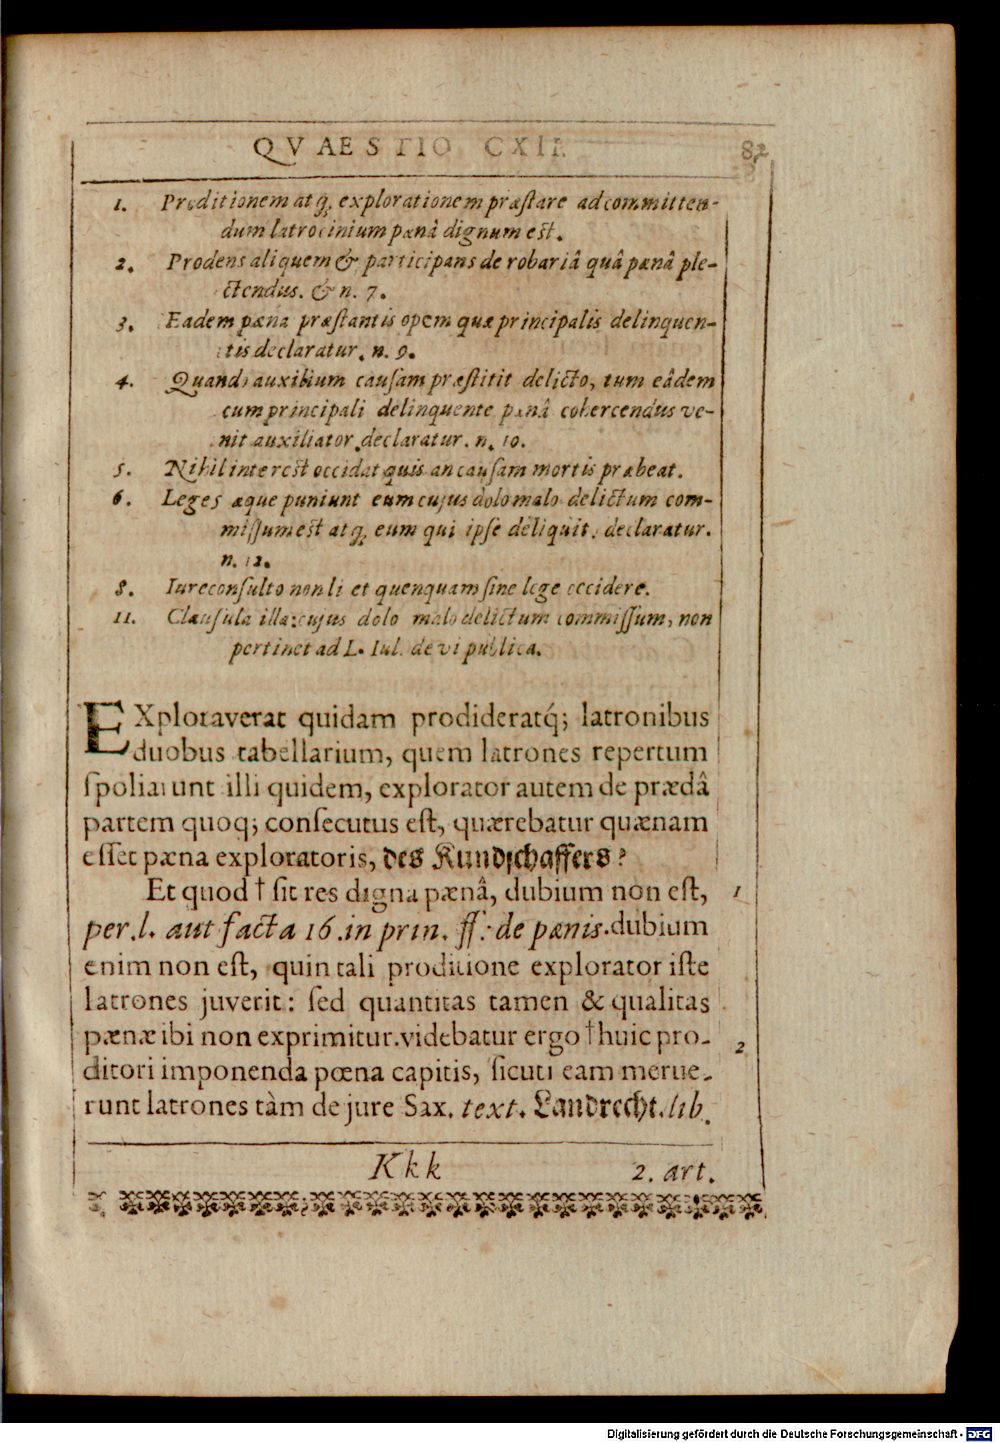 QVAESTIO CXII. 82
1. Proditionem atq; explorationem præstare ad committen-
dum latrocinium pænâ dignum est.
2. Prodens aliquem & participans de robariâ quâ pænâ ple-
ctendus. & n. 7.
3. Eadem pæna præstantis opem quæ principalis delinquen-
tis declaratur. n. 9.
4. Quando auxilium causam præstitit delicto, tum eâdem
cum principali delinquente pænâ cohercendus ve-
nit auxiliator declaratur. n. 10.
5. Nihil interest occidat quis an causam mortis præbeat.
6. Leges æque puniunt eum cujus dolo malo delictum com-
missum est atq; eum qui ipse deliquit. declaratur.
n. 12.
8. Iureconsulto non licet quenquam sine lege occidere.
11. Clausula illa: cujus dolo malo delictum commissum, non
pertinet ad L. Iul. de vi publica.
EXploraverat quidam prodideratq́; latronibus
duobus tabellarium, quem latrones repertum
spoliarunt illi quidem, explorator autem de prædâ
partem quoq; consecutus est, quærebatur quænam
esset pæna exploratoris, des Kundschaffers?
Et quod † sit res digna pænâ, dubium non est, 1
per. l. aut facta 16. in prin. ff. de pænis. dubium
enim non est, quin tali proditione explorator iste
latrones juverit: sed quantitas tamen & qualitas
pænæ ibi non exprimitur. videbatur ergo † huic pro- 2
ditori imponenda pœna capitis, sicuti eam merue-
runt latrones tàm de jure Sax. text. Landrecht. lib.
Kkk 2. art.
Digitalisierung gefördert durch die Deutsche Forschungsgemeinschaft - DFG